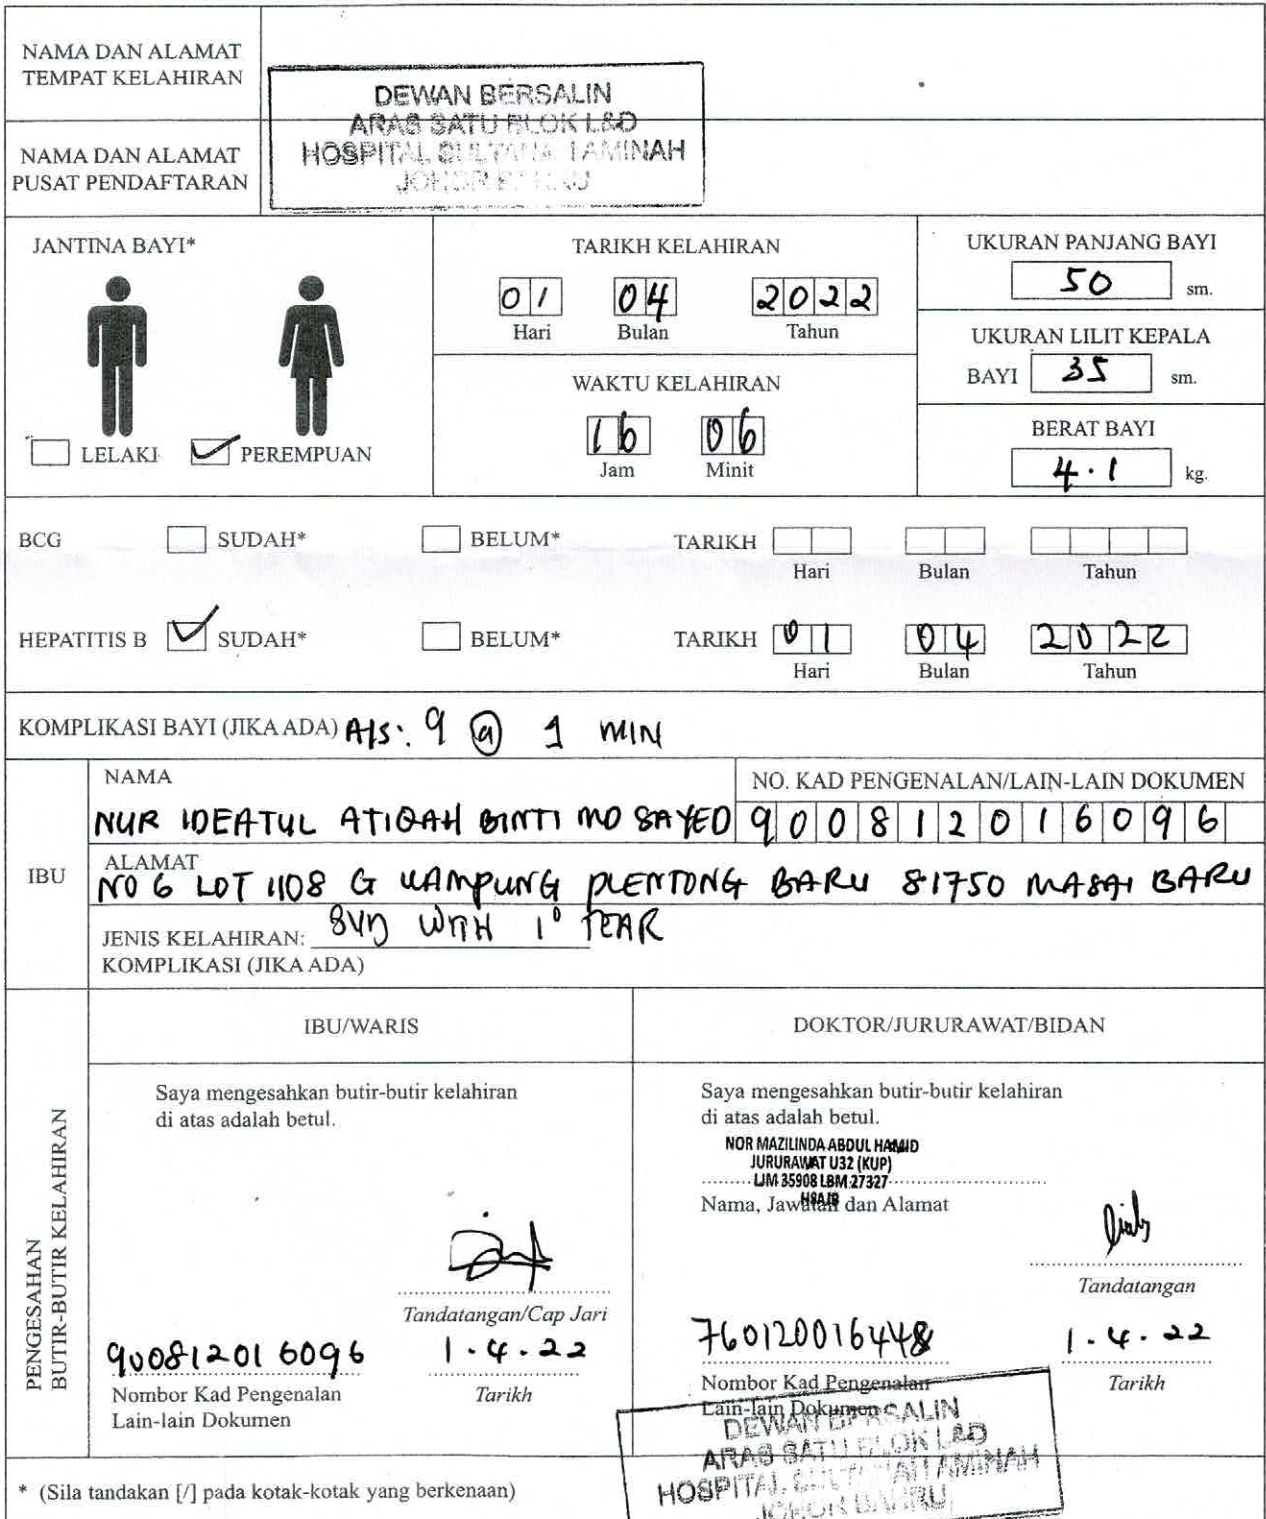 NAMA DAN ALAMAT
TEMPAT KELAHIRAN
DEWAN BERSALIN
ARAS SATU BLOK L&D
HOSPITAL SULTANAH AMINAH
JOHOR BAHRU
NAMA DAN ALAMAT
PUSAT PENDAFTARAN
JANTINA BAYI*
LELAKI PEREMPUAN
TARIKH KELAHIRAN
01 04 2022
Hari Bulan Tahun
WAKTU KELAHIRAN
16 06
Jam Minit
UKURAN PANJANG BAYI
50 sm.
UKURAN LILIT KEPALA
BAYI 35 sm.
BERAT BAYI
4.1 kg.
BCG SUDAH* BELUM* TARIKH
Hari Bulan Tahun
HEPATITIS B SUDAH* BELUM* TARIKH 01 04 2022
Hari Bulan Tahun
KOMPLIKASI BAYI (JIKA ADA) A/S: 9 @ 1 MIN
IBU
NAMA
NUR IDEATUL ATIQAH BINTI MD SAYED
NO. KAD PENGENALAN/LAIN-LAIN DOKUMEN
900812016096
ALAMAT
NO 6 LOT 1108 G KAMPUNG PLENTONG BARU 81750 MASAI BARU
JENIS KELAHIRAN: SVD WITH 1° TEAR
KOMPLIKASI (JIKA ADA)
PENGESAHAN
BUTIR-BUTIR KELAHIRAN
IBU/WARIS
Saya mengesahkan butir-butir kelahiran
di atas adalah betul.
Tandatangan/Cap Jari
900812016096 1.4.22
Nombor Kad Pengenalan Tarikh
Lain-lain Dokumen
DOKTOR/JURURAWAT/BIDAN
Saya mengesahkan butir-butir kelahiran
di atas adalah betul.
NOR MAZILINDA ABDUL HAMID
JURURAWAT U32 (KUP)
LJM 35908 LBM 27327
HSAJB
Nama, Jawatan dan Alamat
Tandatangan
760120016448 1.4.22
Nombor Kad Pengenalan Tarikh
Lain-lain Dokumen
DEWAN BERSALIN
ARAS SATU BLOK L&D
HOSPITAL SULTANAH AMINAH
JOHOR BAHRU
* (Sila tandakan [/] pada kotak-kotak yang berkenaan)